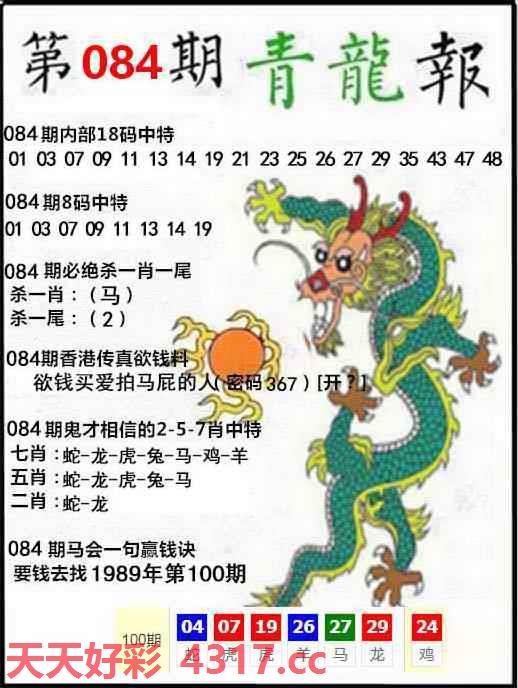 第084期青龍報
084期内部18码中特
01 03 07 09 11 13 14 19 21 23 25 26 27 29 35 43 47 48
084期8码中特
01 03 07 09 11 13 14 19
084期必绝杀一肖一尾
杀一肖：（马）
杀一尾：（2）
084期香港传真欲钱料
欲钱买爱拍马屁的人（密码367）[开？]
084期鬼才相信的2-5-7肖中特
七肖：蛇-龙-虎-兔-马-鸡-羊
五肖：蛇-龙-虎-兔-马
二肖：蛇-龙
084期马会一句赢钱诀
要钱去找1989年第100期
100期 04 07 19 26 27 29 24
蛇 虎 虎 羊 马 龙 鸡
天天好彩 4317.cc